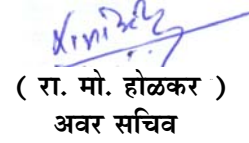 ( रा. मो. होळकर )
अवर सचिव